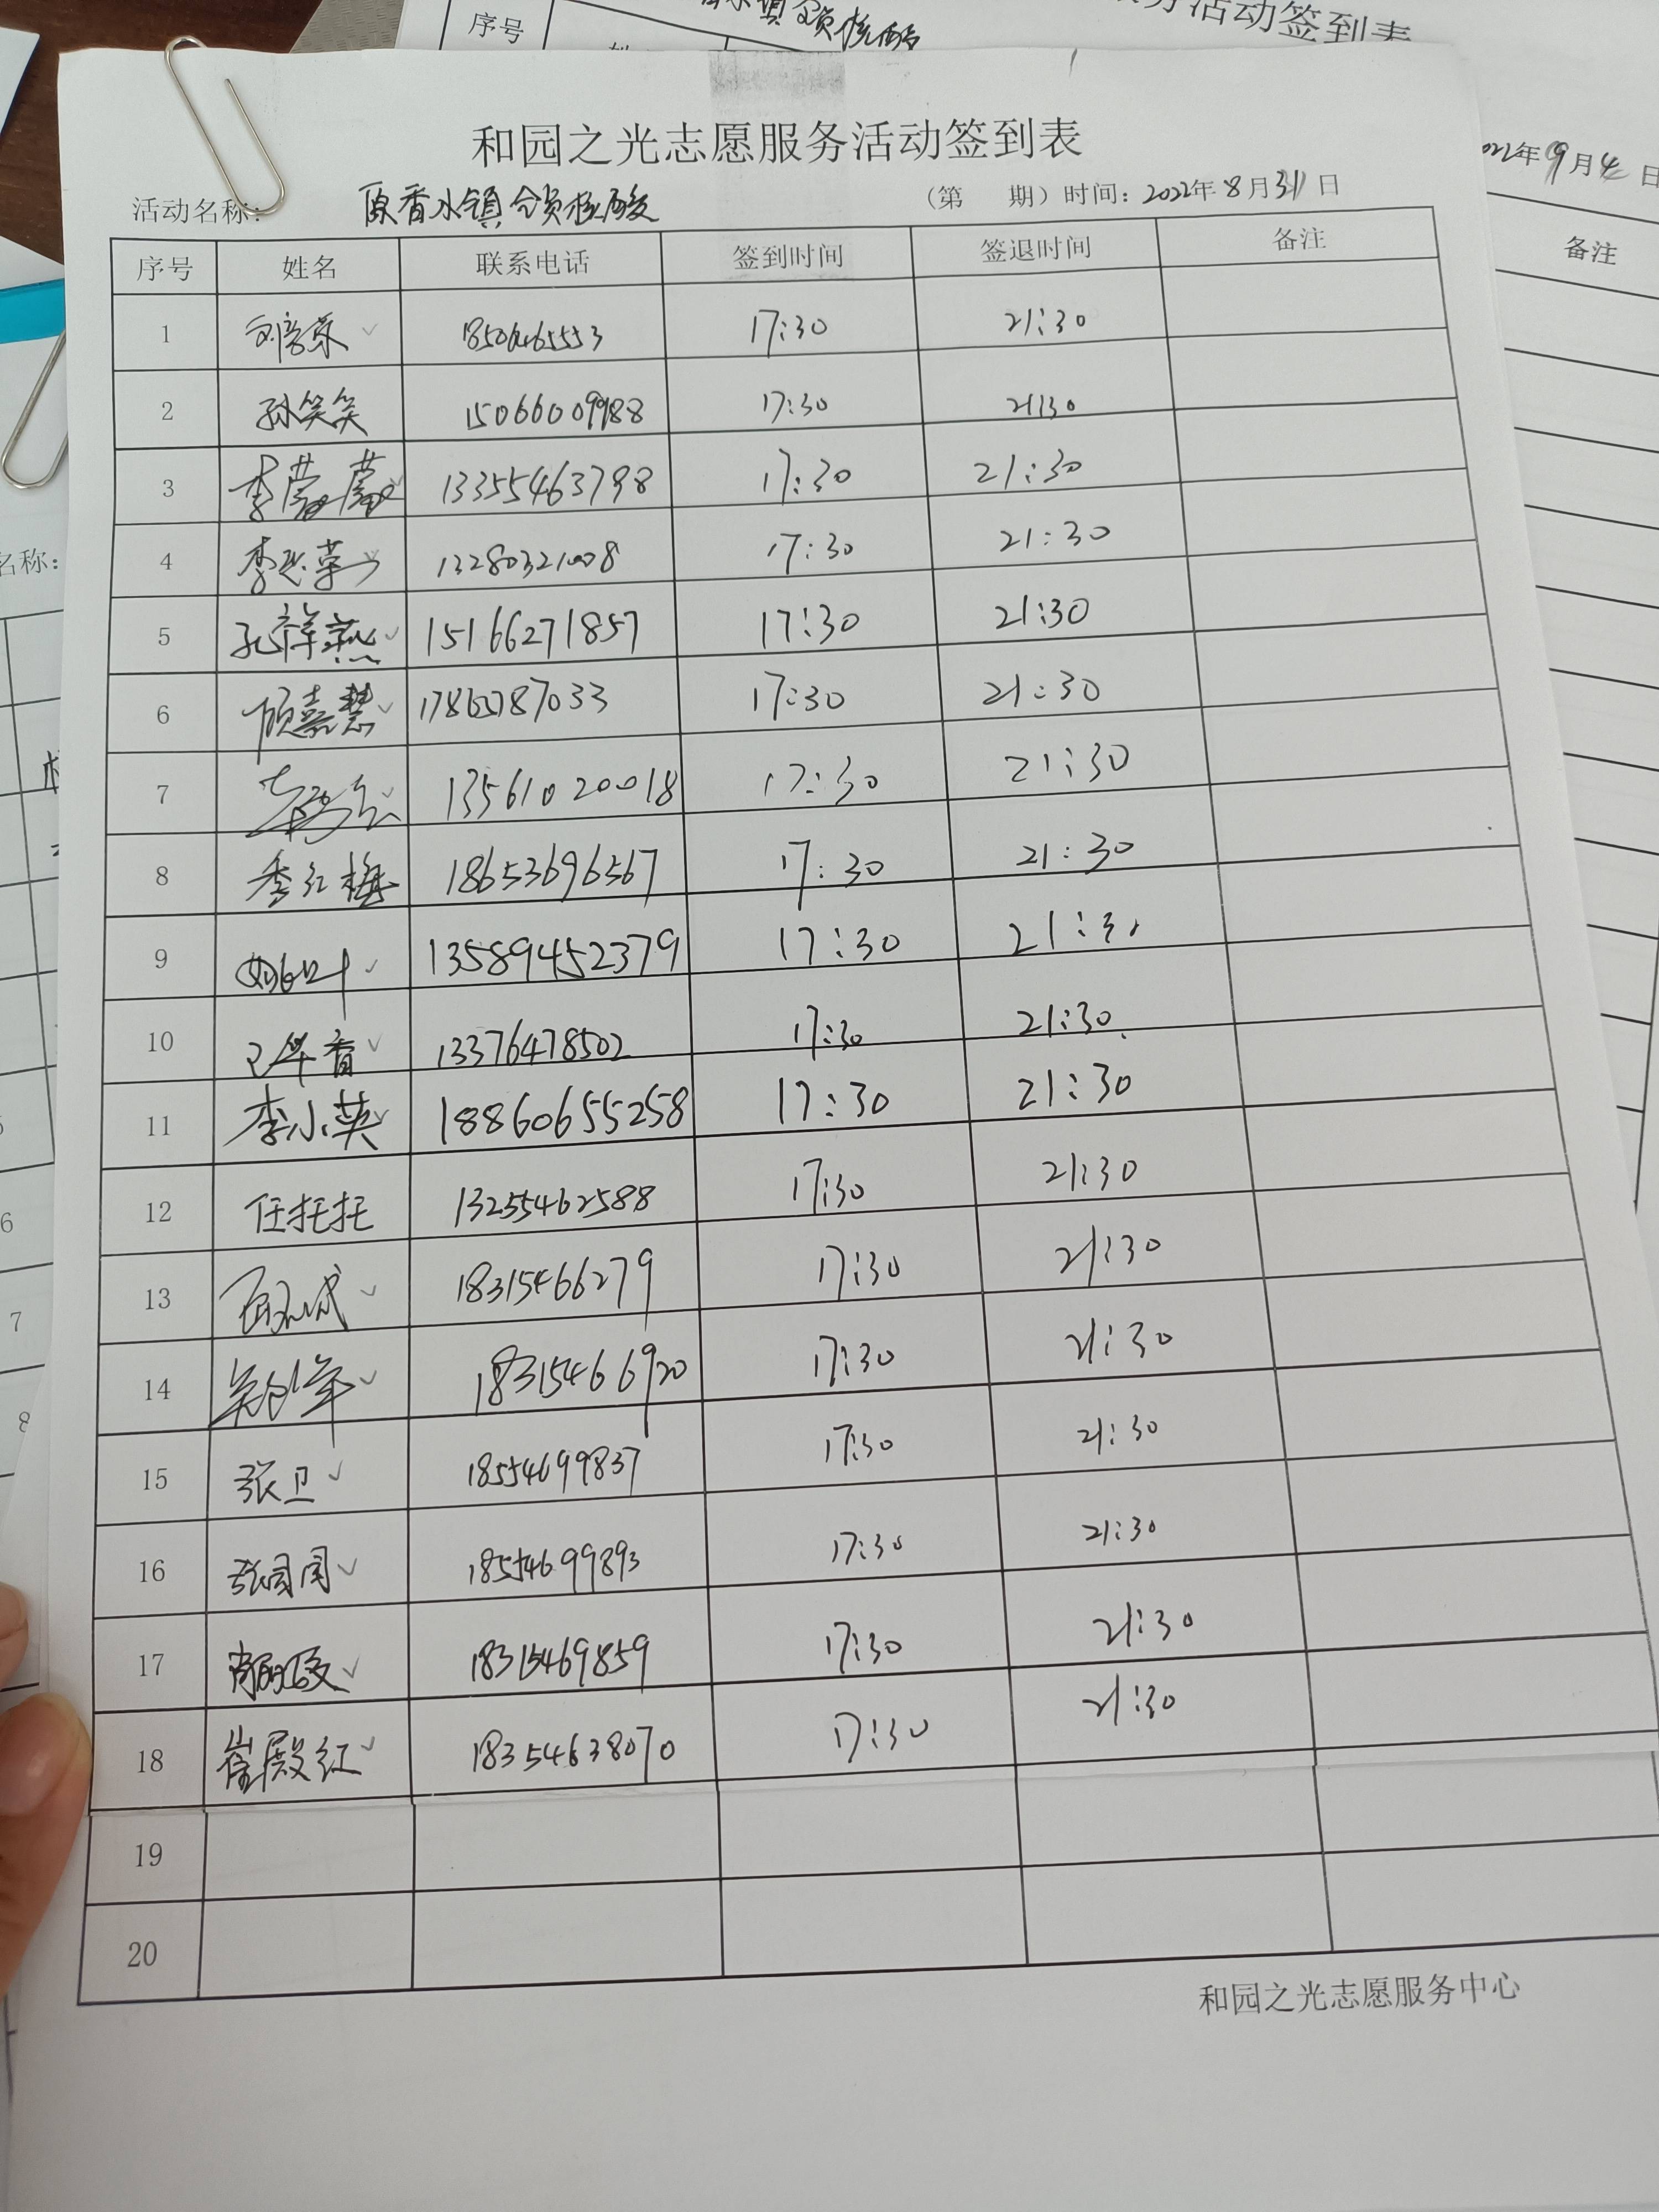 序号
务活动签到表
2022年9月4日
备注
和园之光志愿服务活动签到表
活动名称: 原香水镇全员核酸 (第 期) 时间: 2022年8月31日
序号 姓名 联系电话 签到时间 签退时间 备注
1 17:30 21:30
2 孙笑笑 15066009988 17:30 21:30
3 13355463798 17:30 21:30
4 13280321008 17:30 21:30
5 孔祥燕 15166271857 17:30 21:30
6 顾嘉慧 17865787033 17:30 21:30
7 13561020018 17:30 21:30
8 李红梅 18653696567 17:30 21:30
9 13589452379 17:30 21:30
10 13376478502 17:30 21:30
11 李小英 18860655258 17:30 21:30
12 任托托 13255462588 17:30 21:30
13 18315466279 17:30 21:30
14 18315466920 17:30 21:30
15 张卫 18554699837 17:30 21:30
16 18554699893 17:30 21:30
17 18315469859 17:30 21:30
18 崔殿红 18354638070 17:30 21:30
19
20
和园之光志愿服务中心
名称:
6
7
8